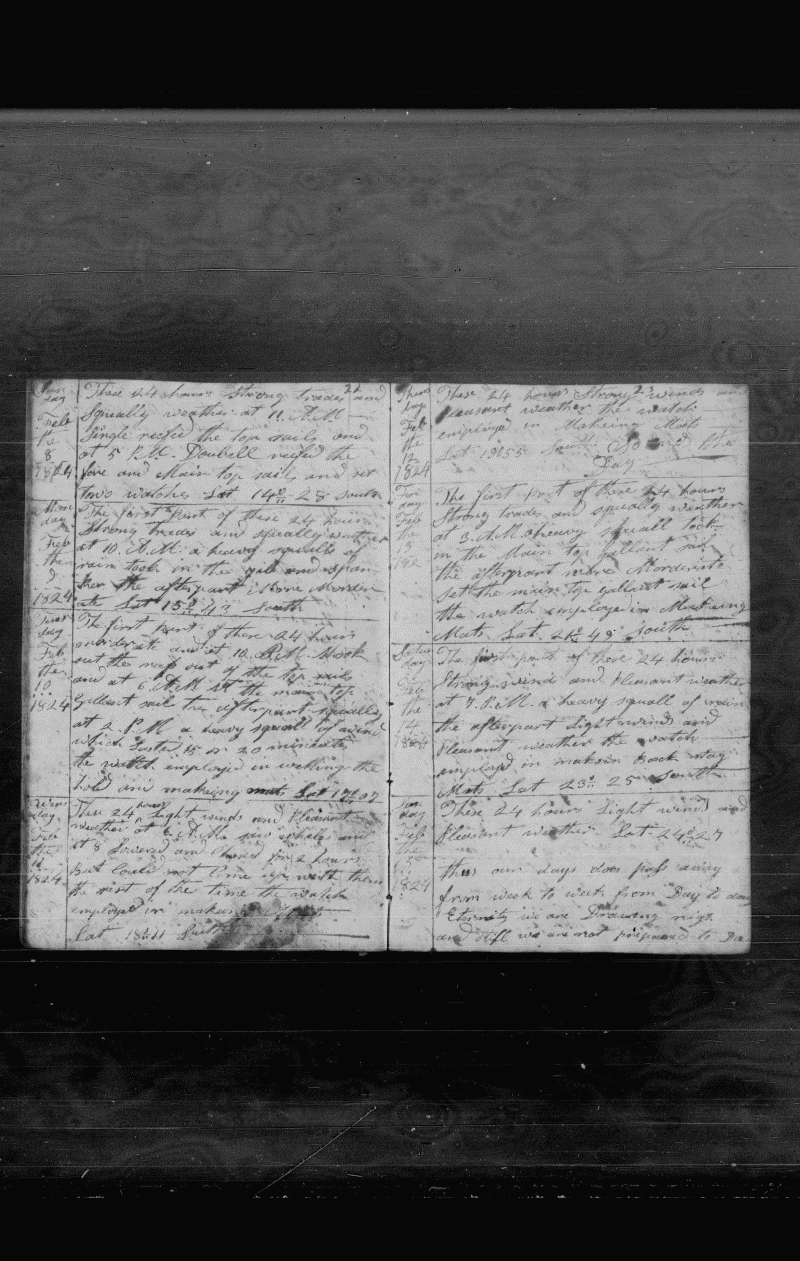 22
Sun
day
Feb
the
8
1824
These 24 hours Strong trades and
Squally weather at 11 A.M
Single reefed the top sails and
at 5 P.M. Doubell reefed the
fore and Main top sails and set
two watches Lat 14° 28 South
Mon
day
Feb
the
9
1824
The first part of these 24 hours
Strong trades and squally weather
at 10. A.M. a heavy squalls of
rain took in the and
the afterpart More Morder
ate Lat 15° 43 South
Tues
day
Feb
the
10
1824
The first part of these 24 hours
morderate and at 10. A.M. Shook
out the reef out of the top sails
and at 6 A.M set the main top
gallent sail the afterpart squally
at 2 P.M a heavy squall of wind
which Lasted 15 or 20 minnutes
the watch employed in wetting the
hold and makeing mats Lat 17 07
Wens
day
Feb
the
11
1824
These 24 hours Light winds and Pleasant
weather at 6 A.M. saw whales and
at 8 Lowered and Chased for 2 hours
But Could not Come up with them
the rest of the time the watch
employed in makeing
Lat 18 11 South
23
Thurs
day
Feb
the
12
1824
These 24 hours Strong winds and
pleasant weather the watch
employed in Makeing Matts
Lat 19 55 South So Ends the
Day
Fri
day
Feb
the
13
182
The first part of these 24 hours
Strong trades and squally weather
at 3. A.M. A heavy squall took
in the Main top gallent sail
the afterpart more Morderate
set the main top gallent sail
the watch employe in Makeing
Mats. Lat. 21° 49 South
Satur
day
Feb
the
14
1824
The first part of these 24 hours
Strong winds and Pleasant weather
at 7. P.M. a heavy squall of rain
the afterpart Light wind and
Pleasant weather the watch
employed in makein Back stay
Mats Lat 23° 25 South
Sun
day
Feb
the
15
1824
These 24 hours Light wind and
Pleasant weather Lat. 24° 27
thus our days does pass away
from week to week from Day to day
Eternity we are Drawing nigh
and still we are not prepared to Die